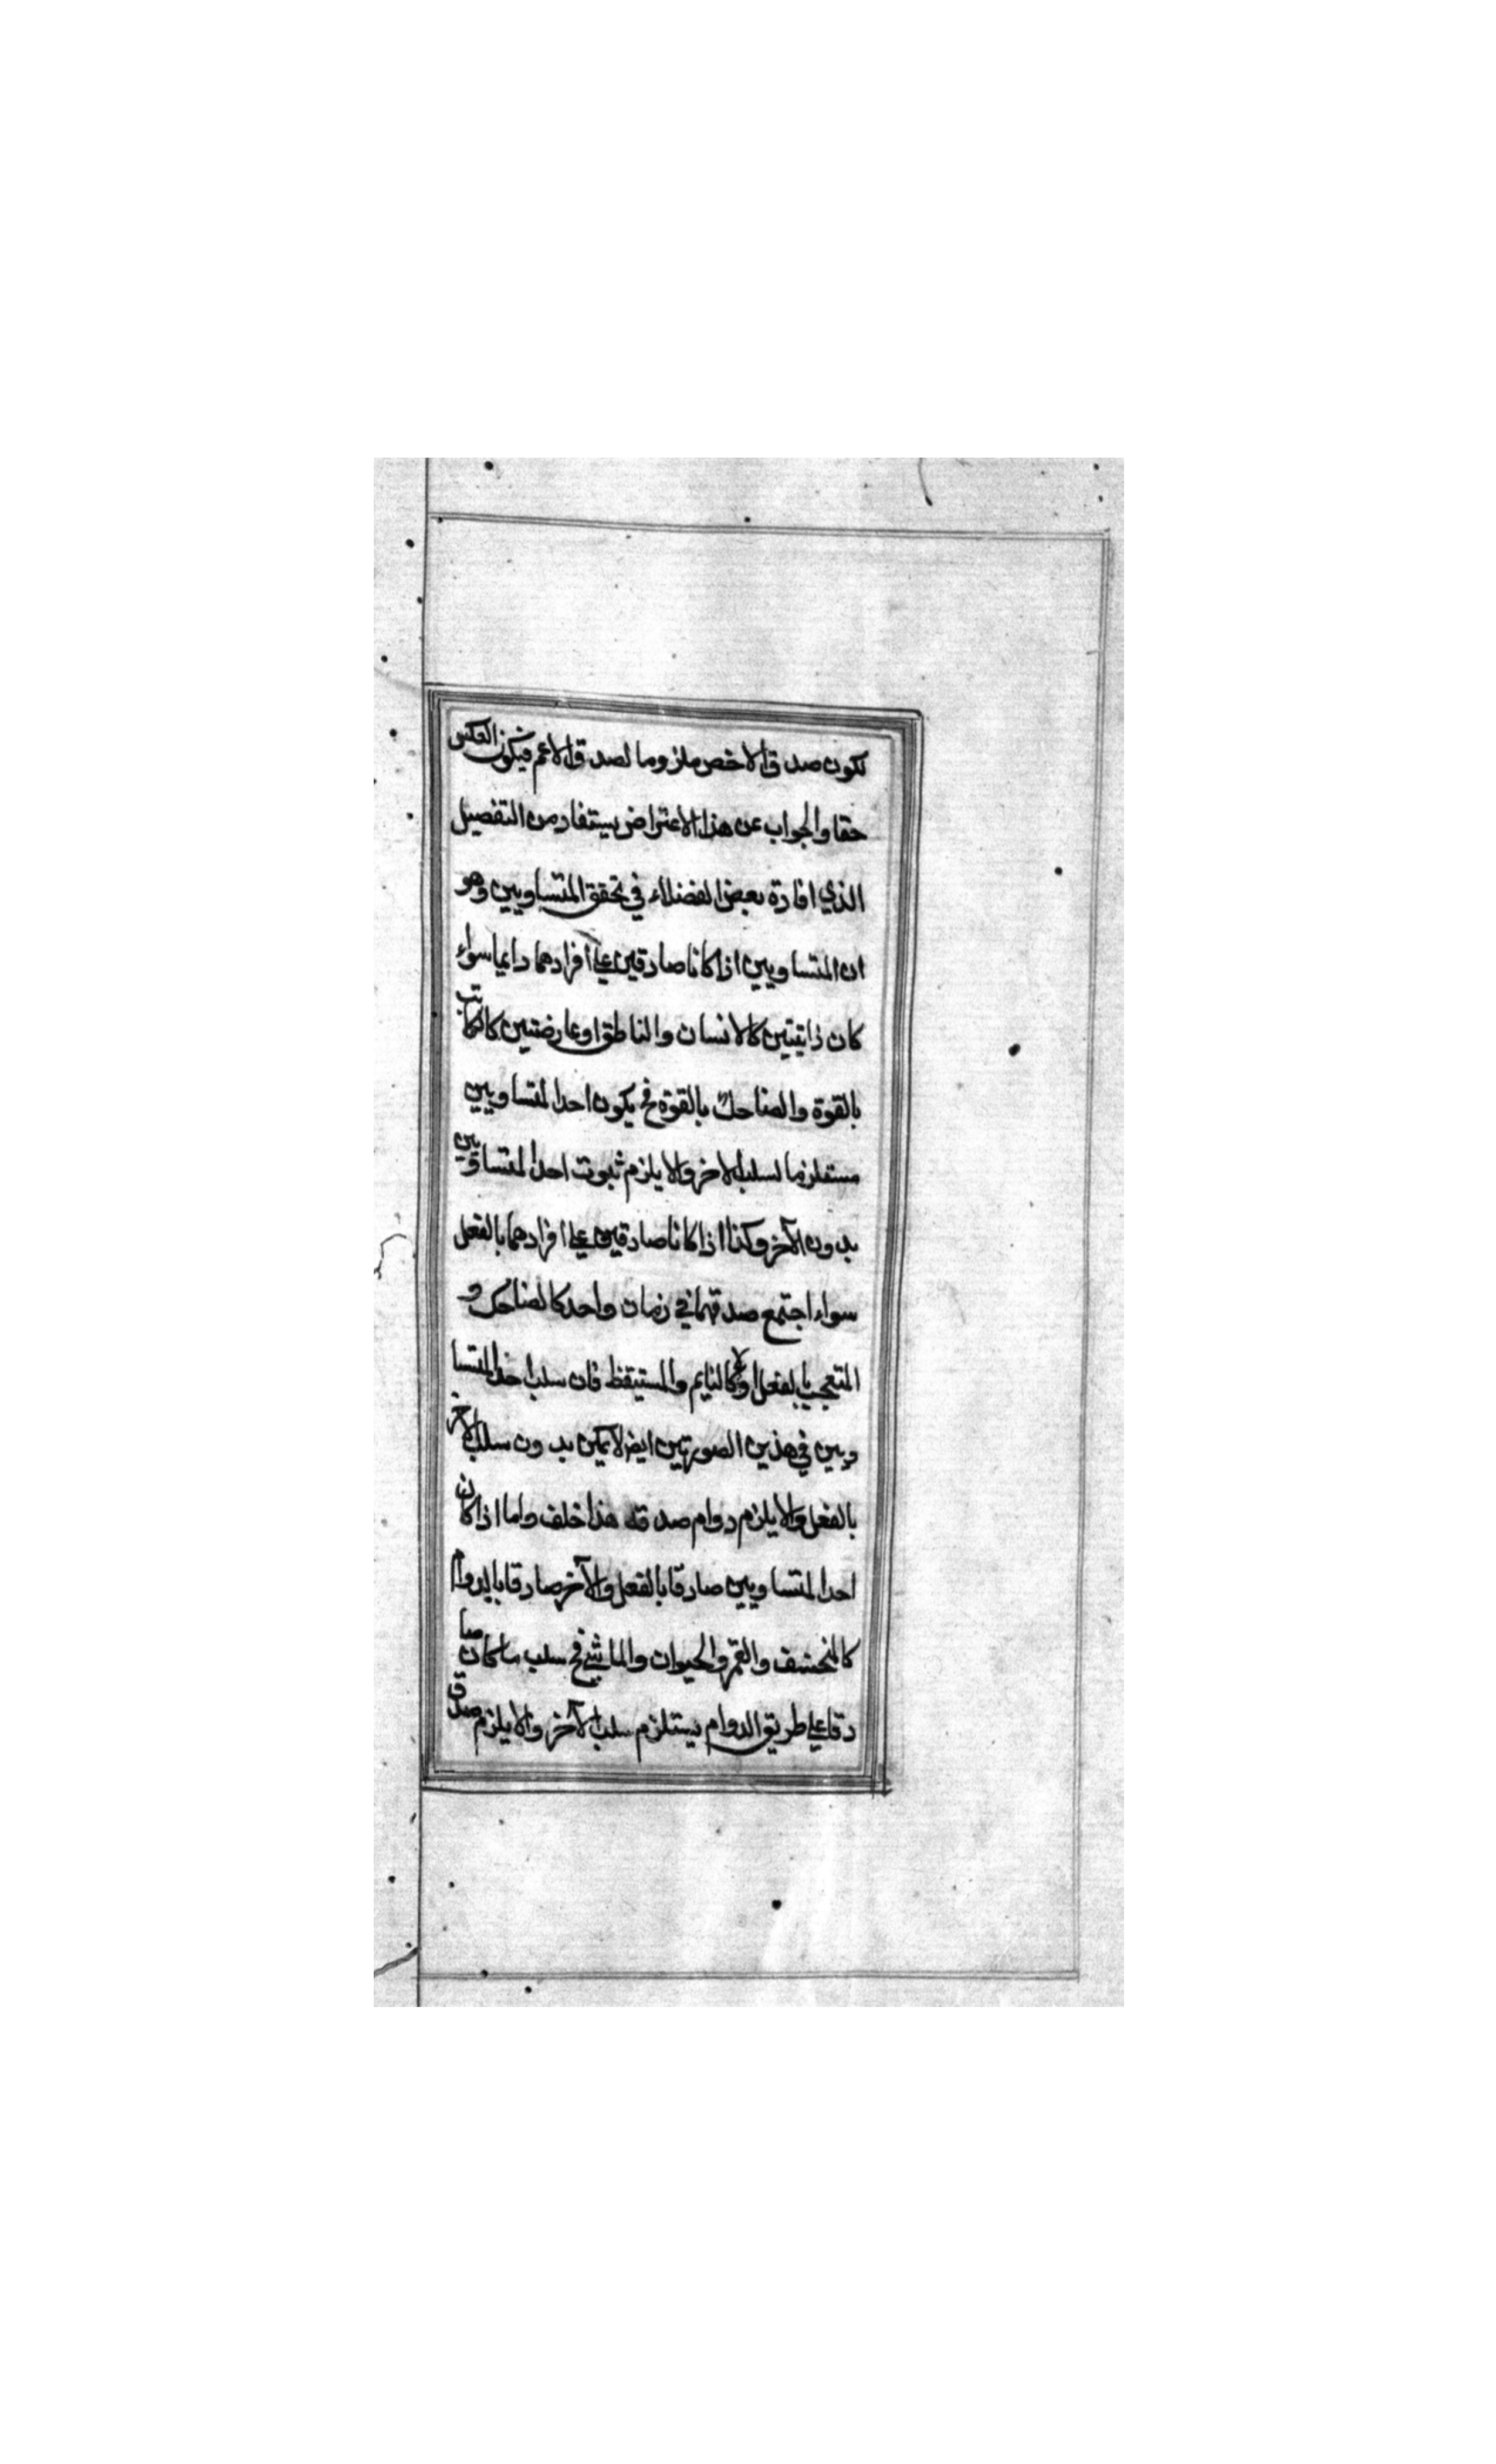 تكون صدق الاخص ملزوما لصدق الاعم فيكون العكس
حقا والجواب عن هذا الاعتراض يستفاد من التفصيل
الذي افادة بعض الفضلاء في تحقق المتساويين وهو
ان المتساويين اذا كانا صادقين على افرادهما دايما سواء
كان ذاتيتين كالانسان والناطق او عارضتين كالكاتب
بالقوة والضاحك بالقوة فح يكون احد المتساويين
مستلزما لسلب الاخر والا يلزم ثبوت احد المتساويين
بدون الآخر وكذا اذا كانا صادقين على افرادهما بالفعل
سواء اجتمع صدقهما في زمان واحد كالضاحك و
المتعجب بالفعل او لا كالنايم والمستيقظ فان سلب احد المتسا
ويين في هذين الصورتين ايض لا يمكن بدون سلب الاخر
بالفعل والا يلزم دوام صدقه هذا خلف واما اذا كان
احد المتساويين صادقا بالفعل والآخر صادقا بالدوام
كالمنخسف والقمر والحيوان والماشي فح سلب ما كان صا
دقا على طريق الدوام يستلزم سلب الآخر والا يلزم صدق